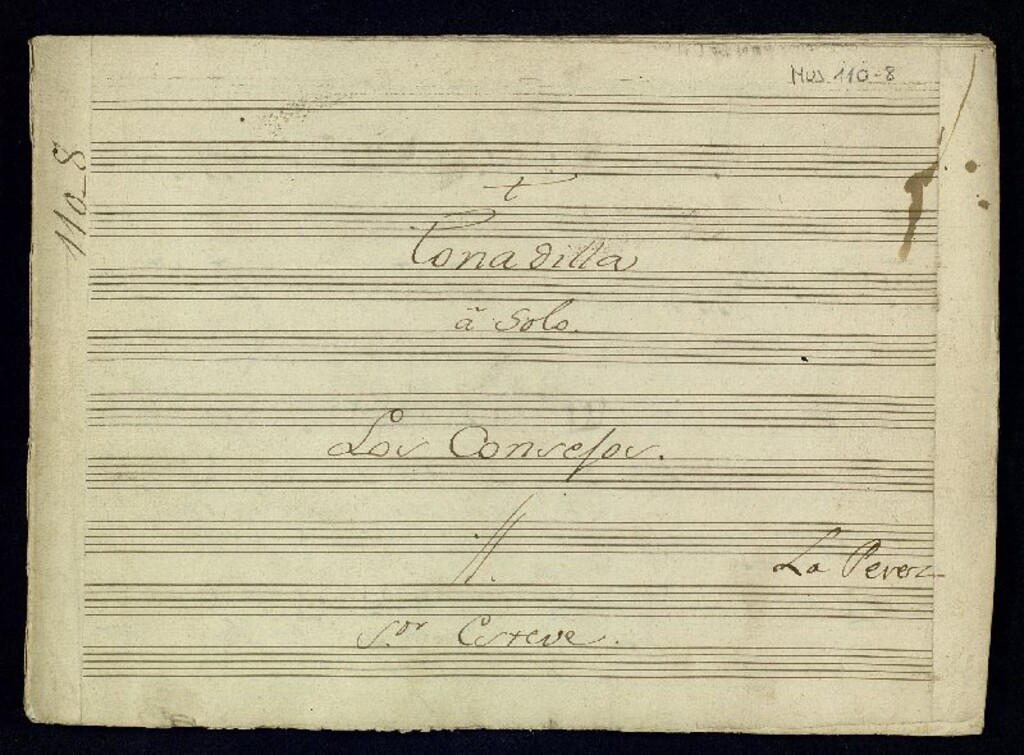 Mus. 110-8
110-8
Tonadilla
ã Solo.
Los Consejos.
La Perez
S.or Esteve.